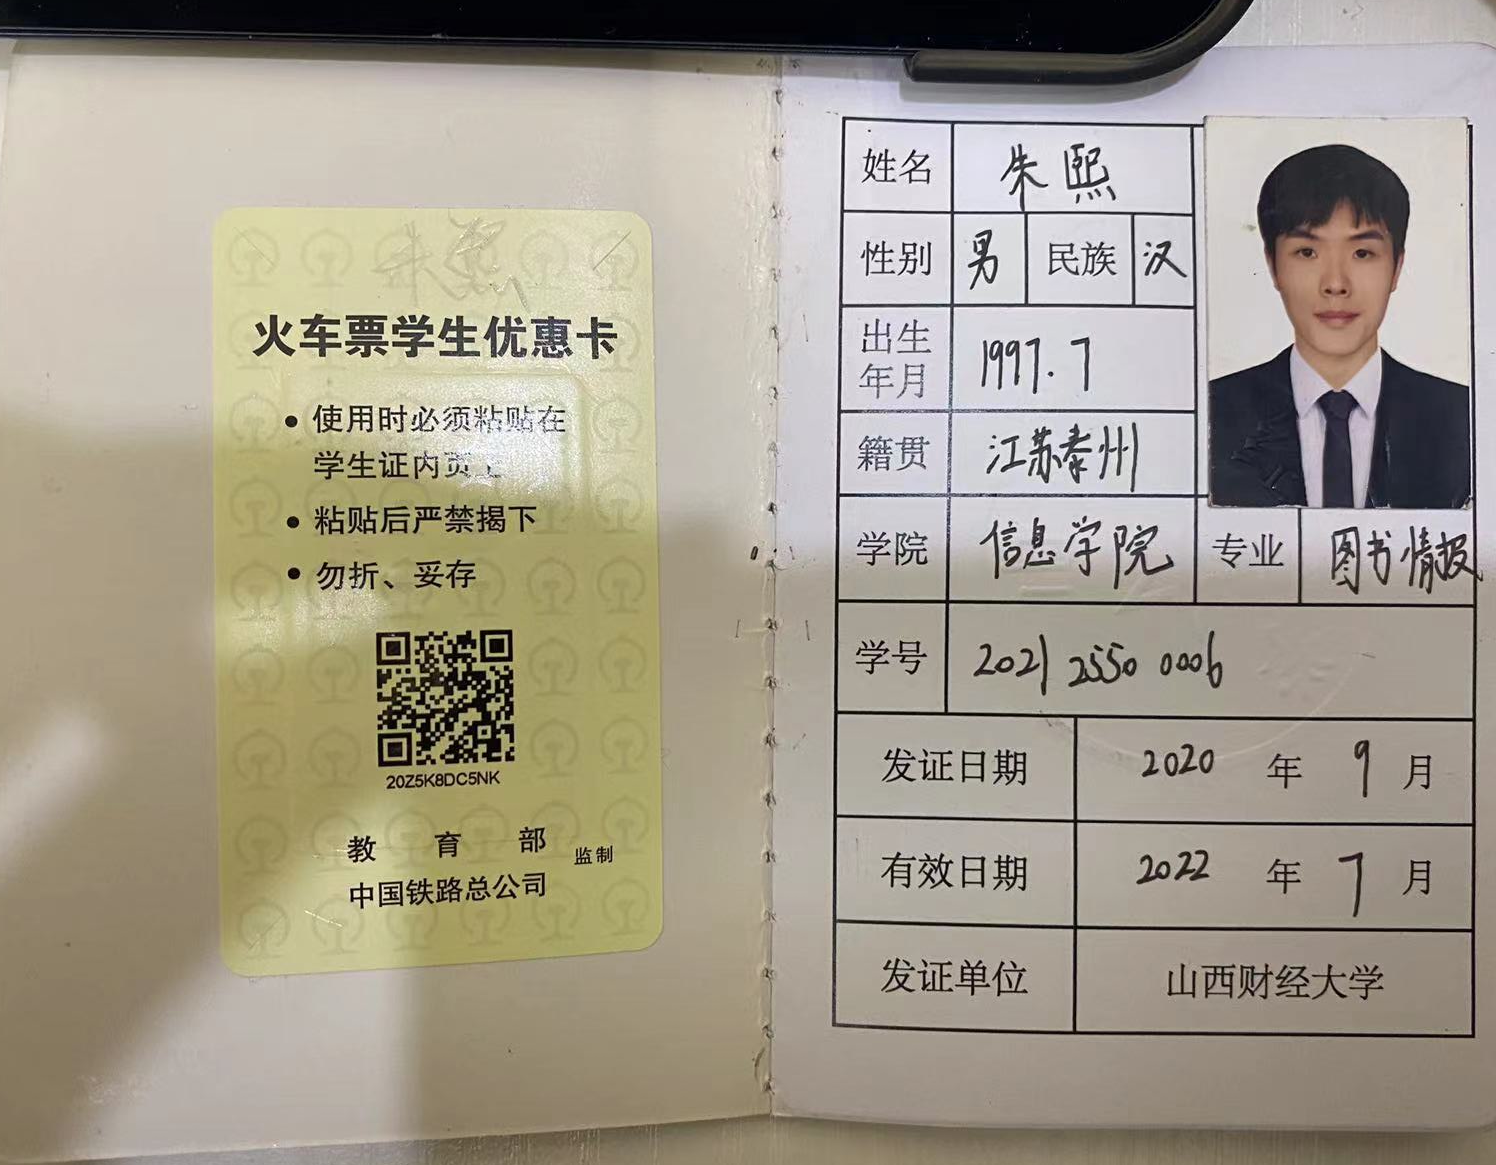 朱熙
火车票学生优惠卡
• 使用时必须粘贴在
学生证内页上
• 粘贴后严禁揭下
• 勿折、妥存
20Z5K8DC5NK
教 育 部
中国铁路总公司 监制
姓名 朱熙
性别 男 民族 汉
出生年月 1997.7
籍贯 江苏泰州
学院 信息学院 专业 图书情报
学号 2021 2550 0006
发证日期 2020 年 9 月
有效日期 2022 年 7 月
发证单位 山西财经大学